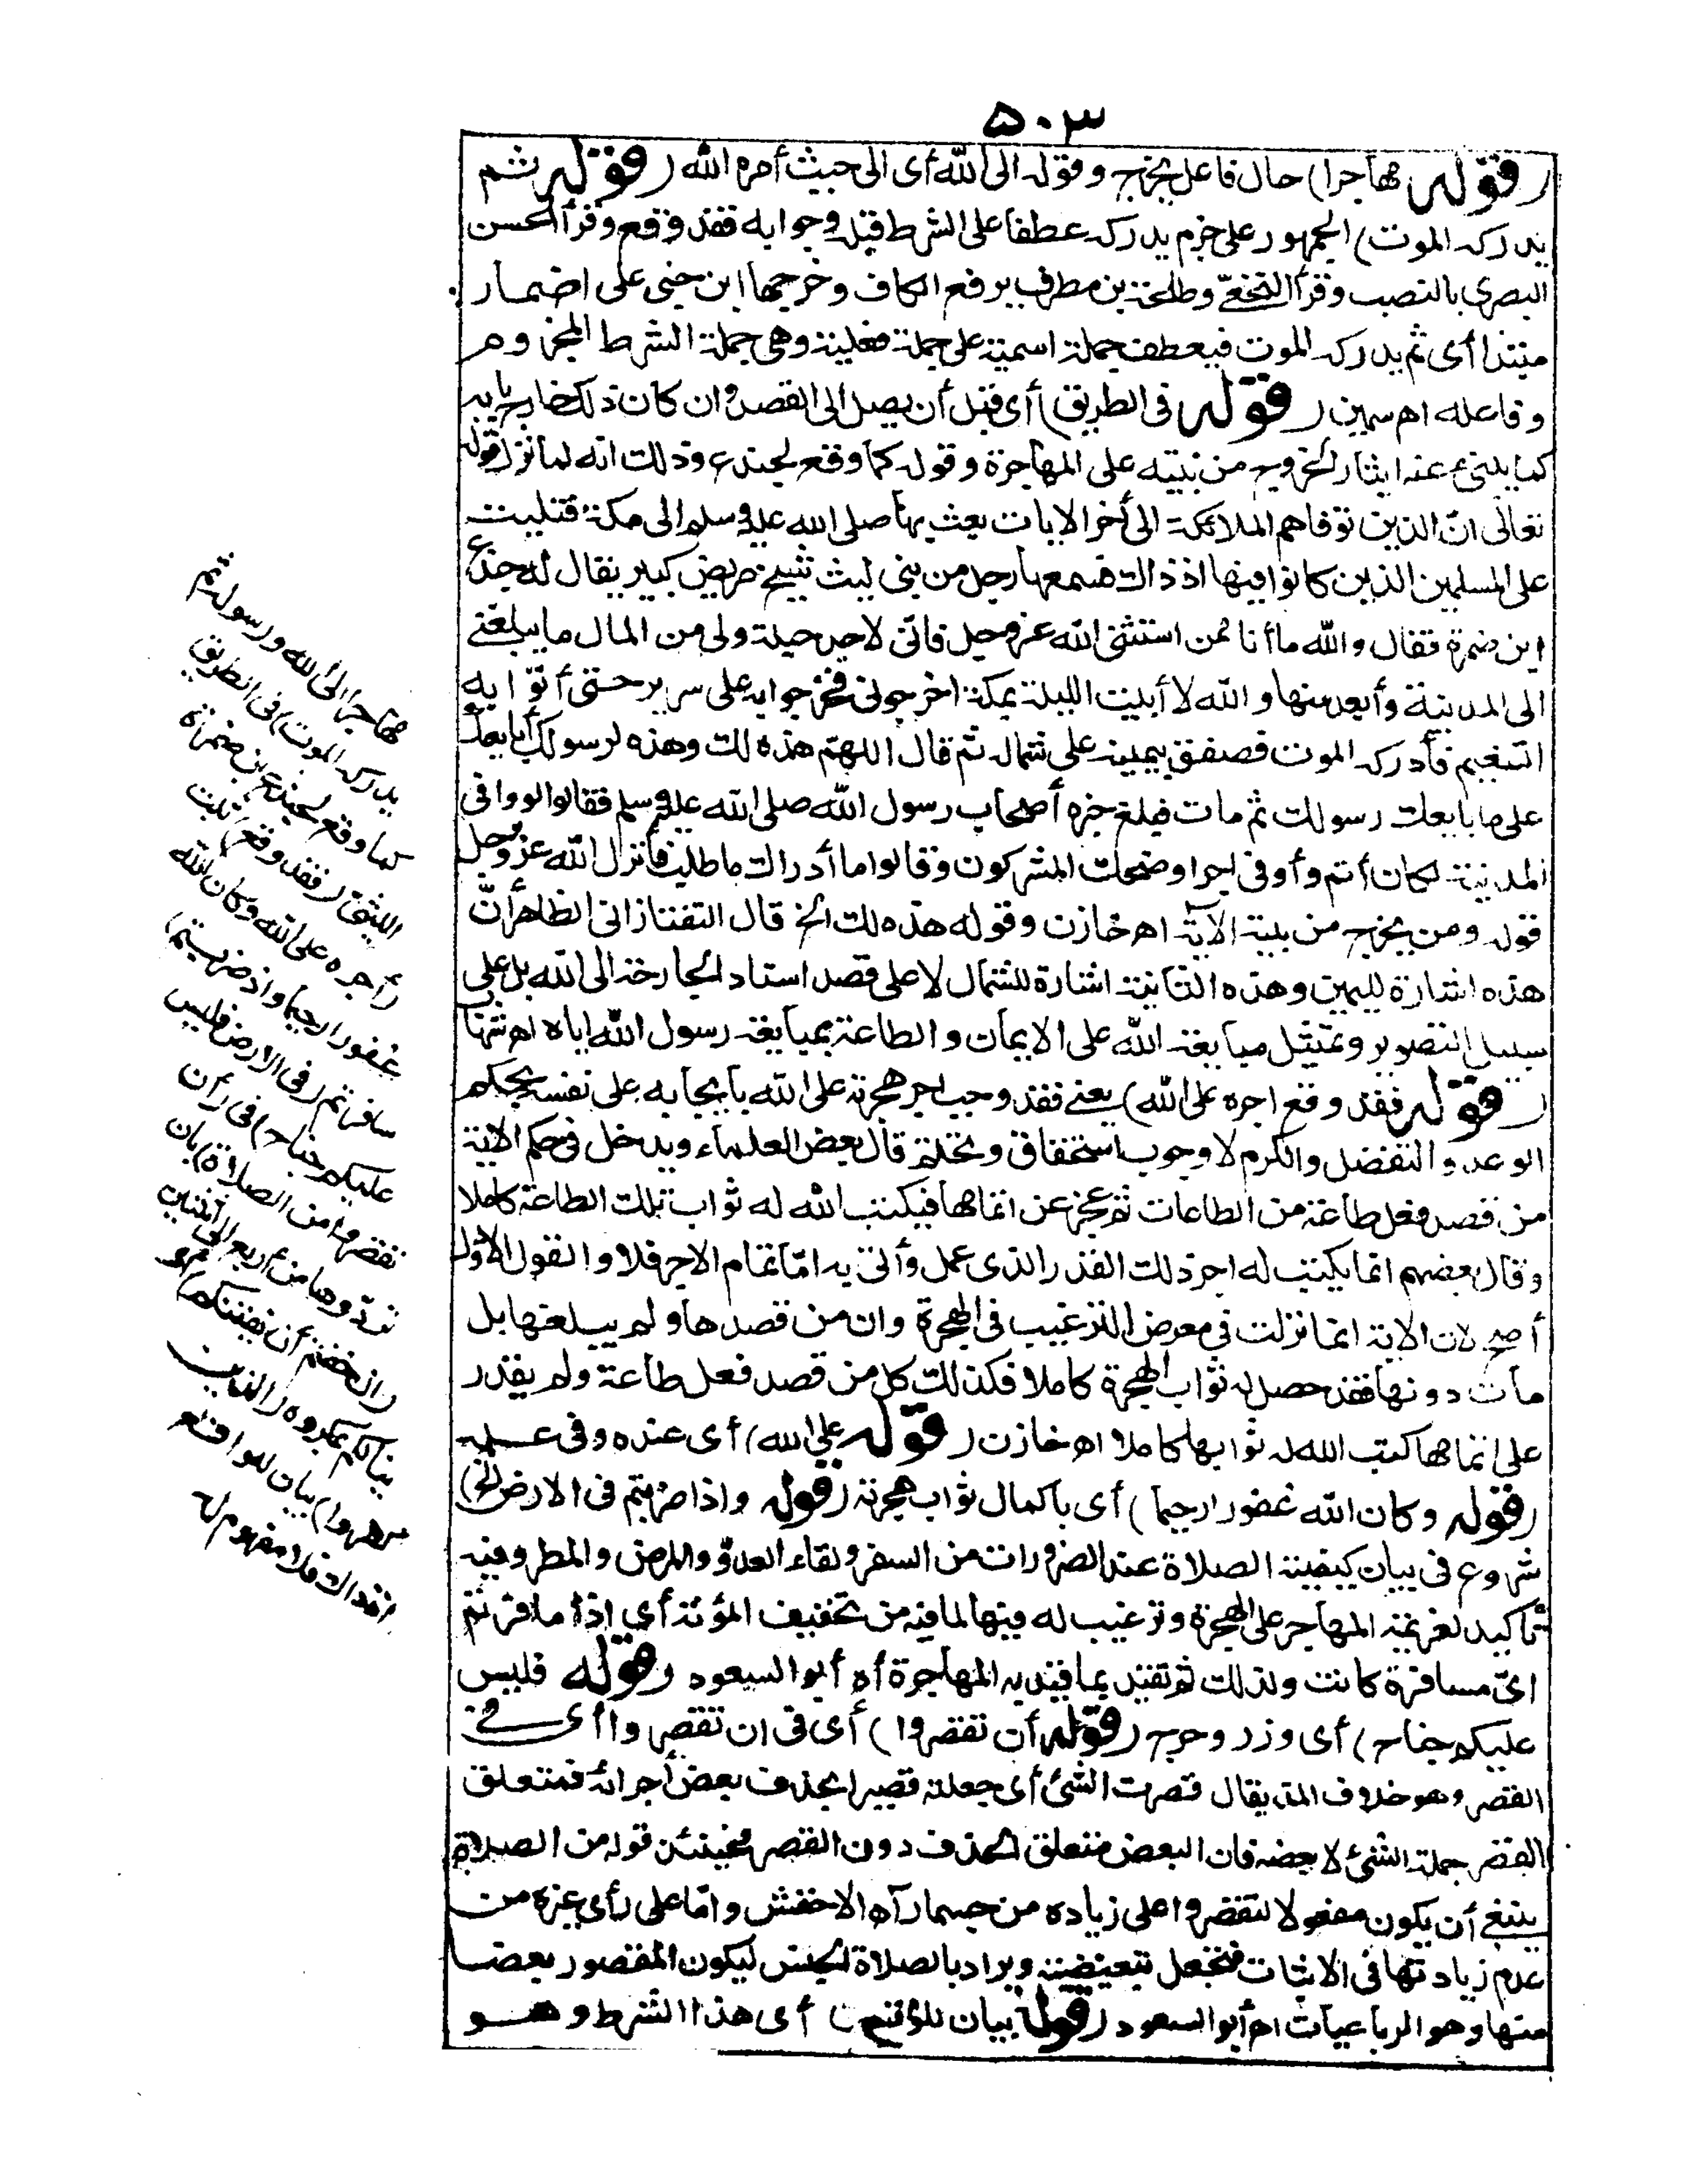 ٥٠٣
(قوله مهاجرا) حال فاعل يخرج وقوله الى الله أى الى حيث أمره الله (قوله ثم
يدركه الموت) الجمهور على جزم يدركه عطفا على الشرط قبله وجوابه فقد وقع وقرأ الحسن
البصرى بالنصب وقرأ النخعى وطلحة بن مطرف برفع الكاف وخرجها ابن جنى على اضمار
مبتدا أى ثم يدركه الموت فيعطف جملة اسمية على جملة فعلية وهى جملة الشرط المجزوم
وفاعله اه سمين (قوله فى الطريق) أى قبل أن يصل الى القصد وان كان ذلك خارج بابه
كما ينبئ عنه ايثار الخروج من بيته على المهاجرة وقوله كما وقع لجندع وذلك انه لما نزل قوله
تعالى ان الذين توفاهم الملائكة الى أخر الايات بعث بها صلى الله عليه وسلم الى مكة فتليت
على المسلمين الذين كانوا فيها اذ ذاك فسمعها رجل من بنى ليث شيخ مريض كبير يقال له جندع
ابن ضمرة فقال والله ما أنا ممن استثنى الله عز وجل فانى لاجد حيلة ولى من المال ما يبلغنى
الى المدينة وأبعد منها والله لا أبيت الليلة بمكة اخرجونى فخرجوا به على سرير حتى أتوا به
التنعيم فأدركه الموت فصفق بيمينه على شماله ثم قال اللهم هذه لك وهذه لرسولك أبايعك
على ما بايعك رسولك ثم مات فبلغ خبره أصحاب رسول الله صلى الله عليه وسلم فقالوا لو وافى
المدينة لكان أتم وأوفى اجرا وضحك المشركون وقالوا ما أدراك ما طلب فأنزل الله عز وجل
قوله ومن يخرج من بيته الآية اه خازن وقوله هذه لك الخ قال التفتازانى الظاهر أن
هذه اشارة لليمين وهذه الثانية اشارة للشمال لا على قصد اسناد الجارحة الى الله بل على
سبيل التصوير وتمثيل مبايعة الله على الايمان والطاعة بمبايعة رسول الله اياه اه شهاب
(قوله فقد وقع اجره على الله) يعنى فقد وجب اجر هجرته على الله بايجابه على نفسه بحكم
الوعد والتفضل والكرم لا وجوب استحقاق وتحتم قال بعض العلماء ويدخل فى حكم الاية
من قصد فعل طاعة من الطاعات ثم عجز عن اتمامها فيكتب الله له ثواب تلك الطاعة كاملا
وقال بعضهم انما يكتب له اجر ذلك القدر الذى عمل وأتى به اما تمام الاجر فلا والقول الاول
أصح لان الاية انما نزلت فى معرض الترغيب فى الهجرة وان من قصدها ولم يبلغها بل
مات دونها فقد حصل له ثواب الهجرة كاملا فكذلك كل من قصد فعل طاعة ولم يقدر
على اتمامها كتب الله له ثوابها كاملا اه خازن (قوله على الله) أى عنده وفى علمه
(قوله وكان الله غفورا رحيما) أى باكمال ثواب هجرته (قوله واذا ضربتم فى الارض الخ)
شروع فى بيان كيفية الصلاة عند الضرورات من السفر ولقاء العدو والمرض والمطر وفيه
تأكيد لعزيمة المهاجر على الهجرة وترغيب له فيها لما فيه من تخفيف المؤنة أى اذا سافرتم
اى مسافرة كانت ولذلك لم تقيد بما قيد به المهاجرة أه أبو السعود (قوله فليس
عليكم جناح) أى وزر وحرج (قوله أن تقصروا) أى فى ان تقصروا أى فى
القصر وهو خلاف المد يقال قصرت الشئ أى جعلته قصيرا بحذف بعض أجزائه فمتعلق
القصر جملة الشئ لا بعضه فان البعض متعلق الحذف دون القصر فحينئذ قوله من الصلاة
ينبغى أن يكون مفعولا لتقصروا على زيادة من حسبما رآه الاخفش واما على رأى غيره من
عدم زيادتها فى الاثبات فتجعل تبعيضية ويراد بالصلاة الجنس ليكون المقصور بعضا
منها وهو الرباعيات اه أبو السعود (قوله بيان للواقع) أى هذا الشرط وهو
مهاجرا الى الله ورسوله ثم
يدركه الموت) فى الطريق
كما وقع لجندع بن ضمرة
الليثى (فقد وقع) ثبت
(أجره على الله وكان الله
غفورا رحيما واذا ضربتم)
سافرتم (فى الارض فليس
عليكم جناح) فى (أن
تقصروا من الصلاة) بان
تردوها من أربع الى اثنتين
(ان خفتم أن يفتنكم) أى
ينالكم بمكروه (الذين
كفروا) بيان للواقع
اذ ذاك فلا مفهوم له